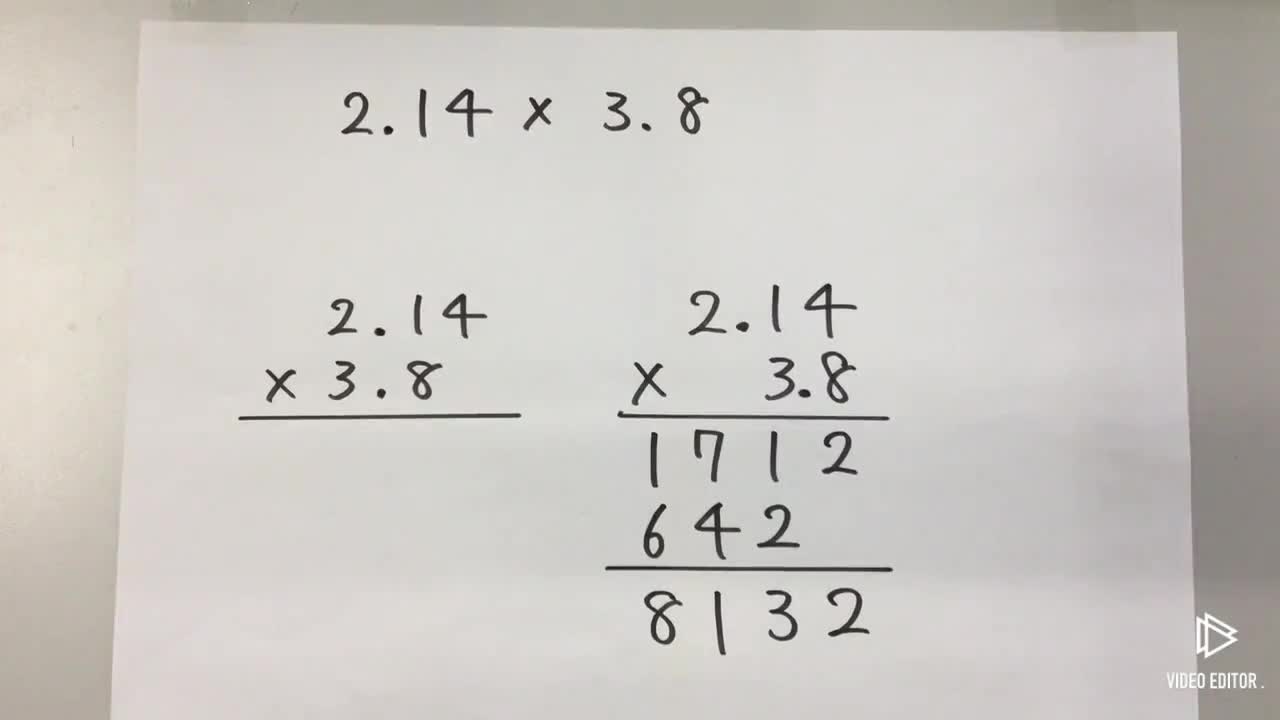 2.14 × 3.8
2.14
× 3.8
2.14
× 3.8
1712
642
8132
VIDEO EDITOR.